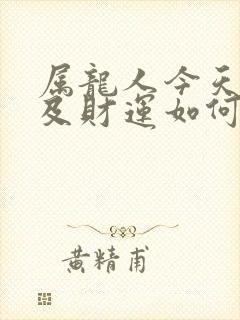 属龍人今天
及財運如何
黄精甫